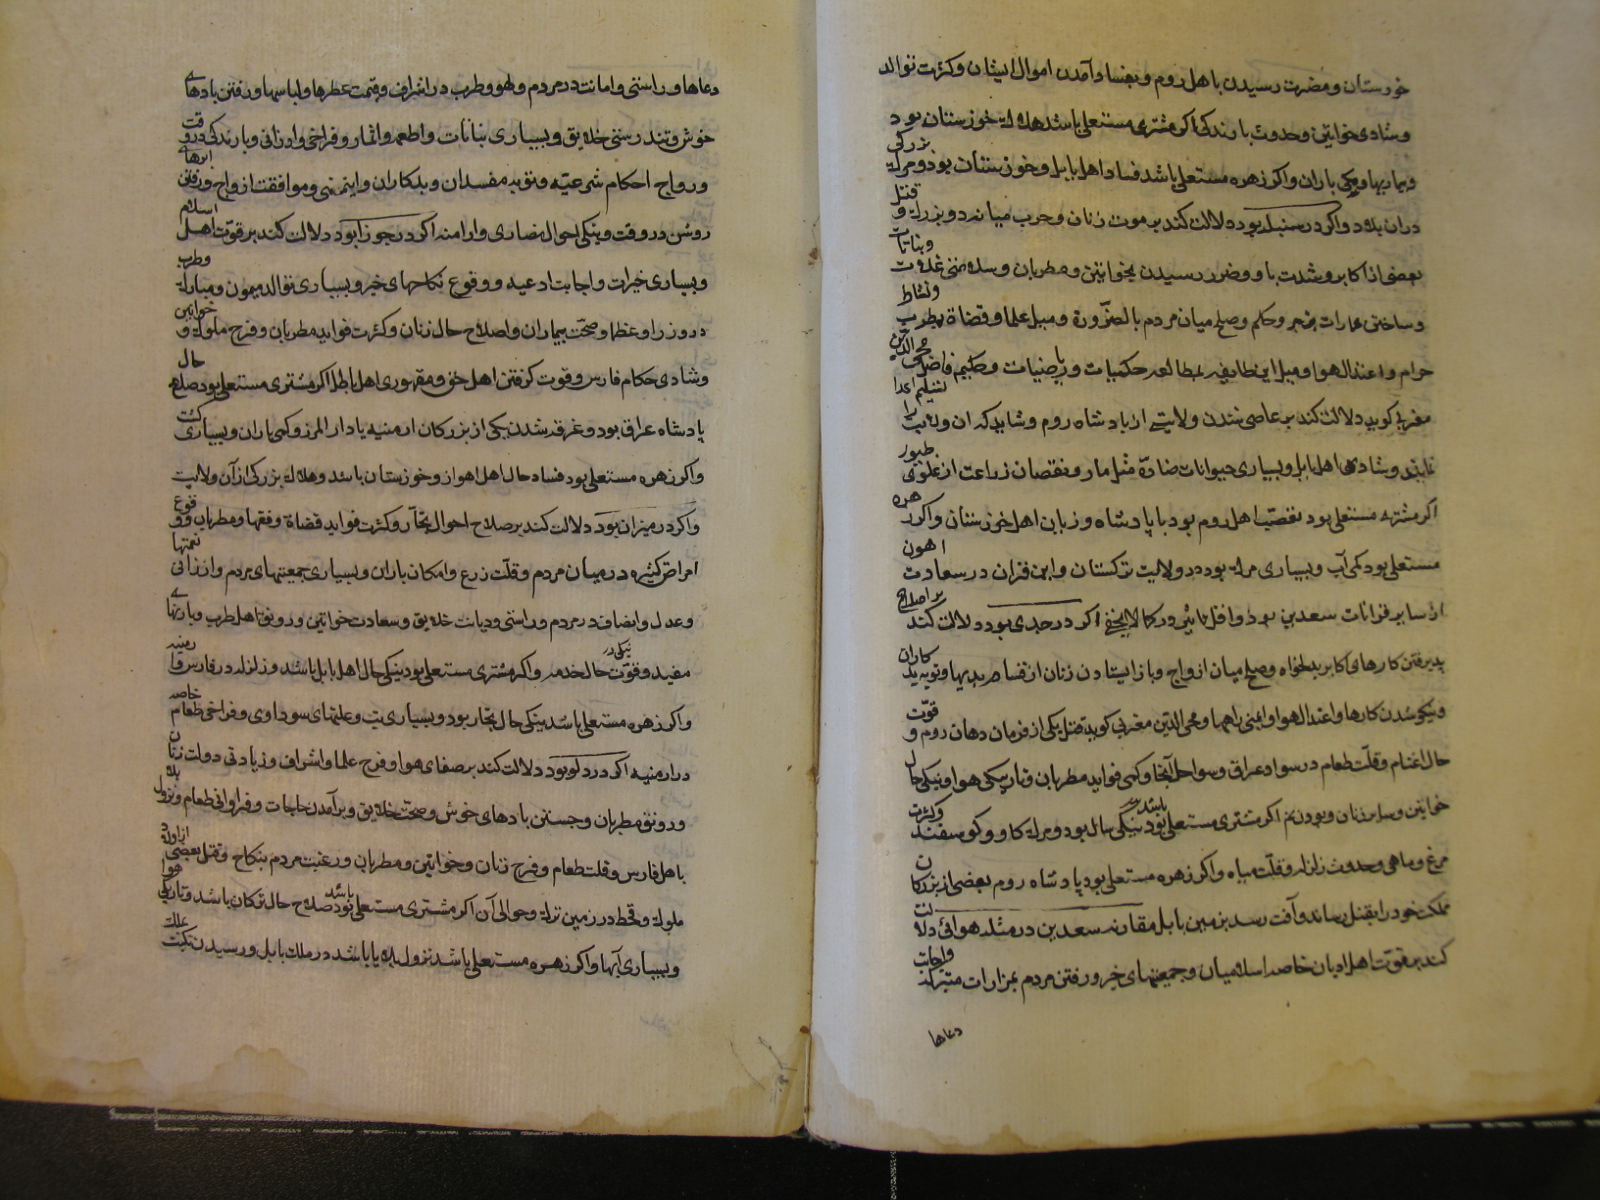 خوزستان و مضرت رسیدن باهل روم و بفساد آمدن اموال ایشان و کثرت توالد
و شادی خواتین و حدوث بارندکی اکر مشتری مستعلی باشد هلاک خوزستان بود
و بیماریها و کمی باران و اکر زهره مستعلی باشد فساد اهل بابل و خوزستان بود و مرک بزرکی
دران بلاد و اکر در سنبله بود دلالت کند بر موت زنان و حرب میان دو بزرک و قتل
بعضی از اکابر و شدت با و ضرر رسیدن بخواتین و مطربان و سلامتی غلات و بناتات
و ساختن عمارات بزجر و حکم و صلح میان مردم بالضرورة و میل علما و قضاة بطرب و نشاط
حرام و اعتدال هوا و میل این طایفه بمطالعه حکمیات و ریاضیات و حکیم فاضل محی الدین
مغربی کوید دلالت کند بر عاصی شدن ولایتی از پادشاه روم و شاید که ان ولایت را تسلیم اعدا
نمایند و شادی اهل بابل و بسیاری حیوانات ضارة مثل مار و نقصان زراعت از علوی طیور
اکر مشتری مستعلی بود تعصب اهل روم بود با پادشاه و زیان اهل خوزستان و اکر زهره
مستعلی بود کمی آب و بسیاری مرک بود در ولایت ترکستان و این قران در سعادت اهون
از سایر قرانات سعدین بود و اقل تاثیر و رکما لایخفی اکر در جدی بود دلالت کند بر اصلاح
پذیرفتن کارهای اکابر بدلخواه و صلح میان ازواج و باز ایستادن زنان از تقاصر بدیها و توبه بدکاران
و نیکو شدن کارها و اعتدال هوا و ایمنی راهها و محی الدین مغربی کوید قتل یکی از فرمان دهان روم و قوت
حال اغنام و قلت طعام در سواد عراق و سواحل آنجا و کمی فواید مطربان و تاریکی هوا و نیکی حال
خواتین و سایر زنان و بودن نم اکر مشتری مستعلی بود نیکی سال بود و مرک کاو و کوسفند و کثرت
مرغ و ماهی و حدوث زلزله و قلت میاه و اکر زهره مستعلی بود پادشاه روم بعضی از بزرکان
مملکت خود را بقتل رساند و آفت رسد بزمین بابل مقارنه سعدین در مثلثه هوائی دلالت
کند بر قوت اهل ادیان خاصه اسلامیان و جمعیتهای خیر و رفتن مردم بمزارات متبرکه و اجابت
دعاها
دعاها و راستی و امانت در مردم و لهو و طرب در اشراف و قیمت عطرها و لباسها و رفتن بادهای
خوش و تندرستی خلایق و بسیاری نباتات و اطعمه و اثمار و فراخی و ارزانی و بارندکی در وقت
و رواج احکام شرعیه و توبه مفسدان و بدکاران و ایمنی و موافقت ازواج و رفتن ابرهای
روشن در وقت و نیکی احوال نصاری و ارامنه اکر در جوزا بود دلالت کند بر قوت اهل اسلام
و بسیاری خیرات و اجابت ادعیه و وقوع نکاحهای خیر و بسیاری توالد میمون و مبارک و طرب
در وزرا و عظما و صحت بیماران و اصلاح حال زنان و کثرت فواید مطربان و فرح ملوک و خواتین
و شادی حکام فارس و قوت کرفتن اهل حق و مقهوری اهل باطل اکر مشتری مستعلی بود صلاح حال
پادشاه عراق بود و غرقه شدن یکی از بزرکان ارمنیه یا دار المرز و کمی باران و بسیاری کشت
و اکر زهره مستعلی بود فساد حال اهل اهواز و خوزستان باشد و هلاک بزرکی از آن ولایت
و اکر در میزان بود دلالت کند بر صلاح احوال تجار و کثرت فواید قضاة و فقها و مطربان و وقوع
امراض کثیره در میان مردم و قلت زرع و امکان باران و بسیاری جمعیتهای مردم و ارزانی نعمتها
و عدل و انصاف در مردم و راستی و دیانت خلایق و سعادت خواتین و رونق اهل طرب و بارانهای
مفید و قوت حال خدم و اکر مشتری مستعلی بود نیکی حال اهل بابل باشد و زلزله در فارس و ارمنیه
و اکر زهره مستعلی باشد نیکی حال تجار بود و بسیاری تب و علتهای سوداوی و فراخی طعام خاصه
در ارمنیه اکر در دلو بود دلالت کند بر صفای هوا و فرح علما و اشراف و زیادتی دولت زنان
و رونق مطربان و جستن بادهای خوش و صحت خلایق و برآمدن حاجات و فراوانی طعام و نزول بلا
باهل فارس و قلت طعام و فرح زنان و خواتین و مطربان و رغبت مردم بنکاح و قتل بعضی از اولاد
ملوک و قحط در زمین ترک و حوالی آن اکر مشتری مستعلی بود صلاح حال ترکان باشد و تاریکی هوا
و بسیاری آبها و اکر زهره مستعلی باشد نزول بلایا باشد در ملک بابل و رسیدن نکبت ملک